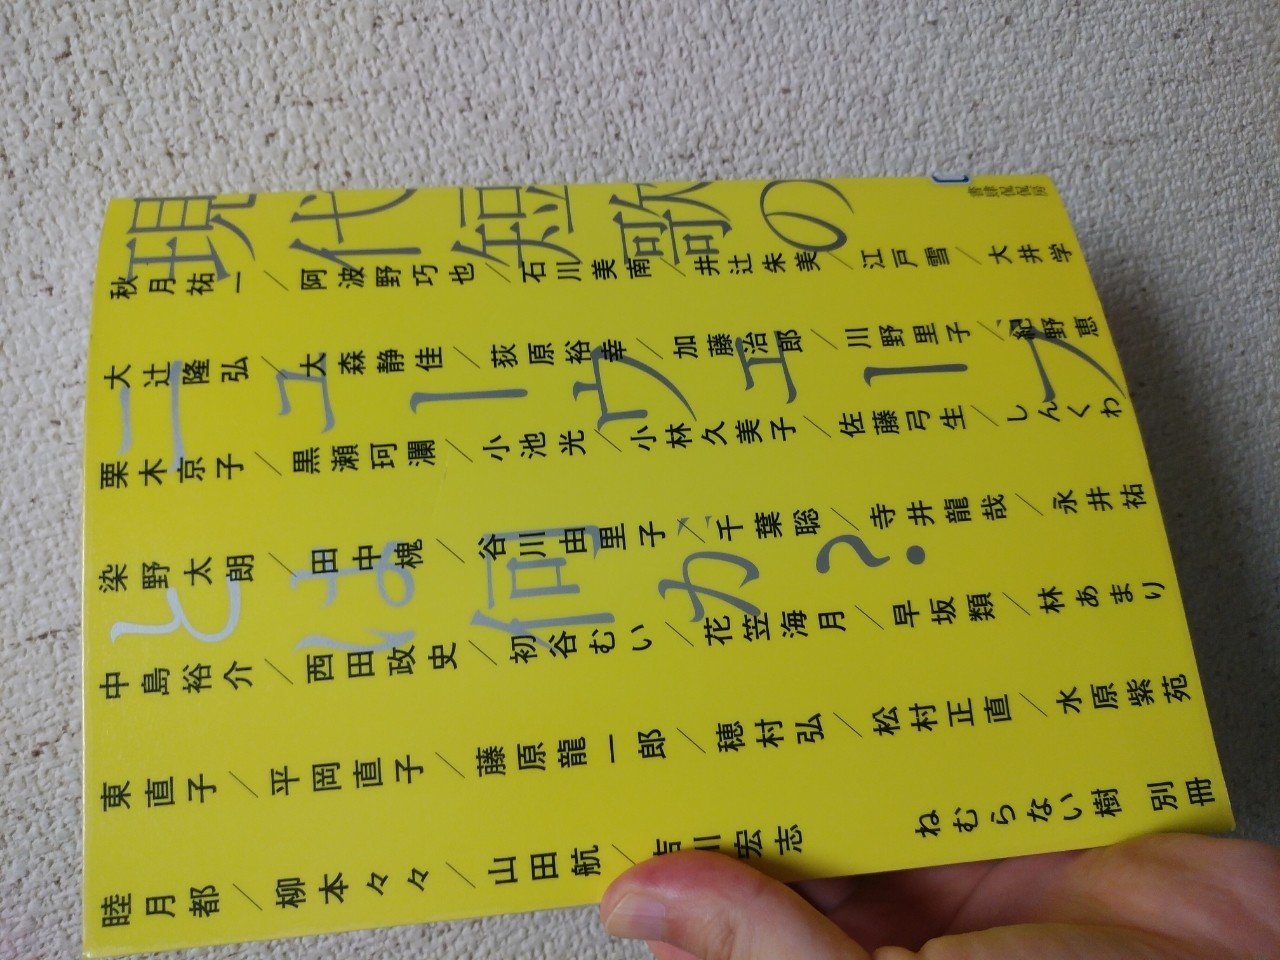 現代短歌の
ニューウェーブ
とは何か?
秋月祐一/阿波野巧也/石川美南/井辻朱美/江戸雪/大井学
大辻隆弘/大森静佳/荻原裕幸/加藤治郎/川野里子/紀野恵
栗木京子/黒瀬珂瀾/小池光/小林久美子/佐藤弓生/しんくわ
染野太朗/田中槐/谷川由里子/千葉聡/寺井龍哉/永井祐
中島裕介/西田政史/初谷むい/花笠海月/早坂類/林あまり
東直子/平岡直子/藤原龍一郎/穂村弘/松村正直/水原紫苑
睦月都/柳本々々/山田航/吉川宏志
ねむらない樹 別冊
書肆侃侃房